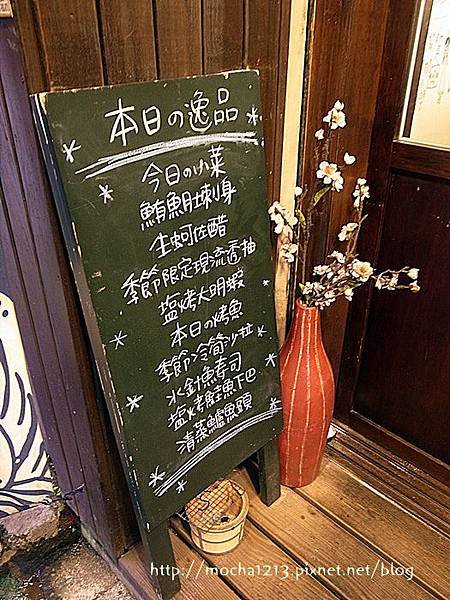 本日の逸品
今日の小菜
鮪魚肚刺身
生蚵佐醋
季節限定現流透抽
塩烤大明蝦
本日の烤魚
季節冷筍沙拉
水針魚寿司
塩烤鮭魚下巴
清蒸鱸魚頭
http://mocha1213.pixnet.net/blog